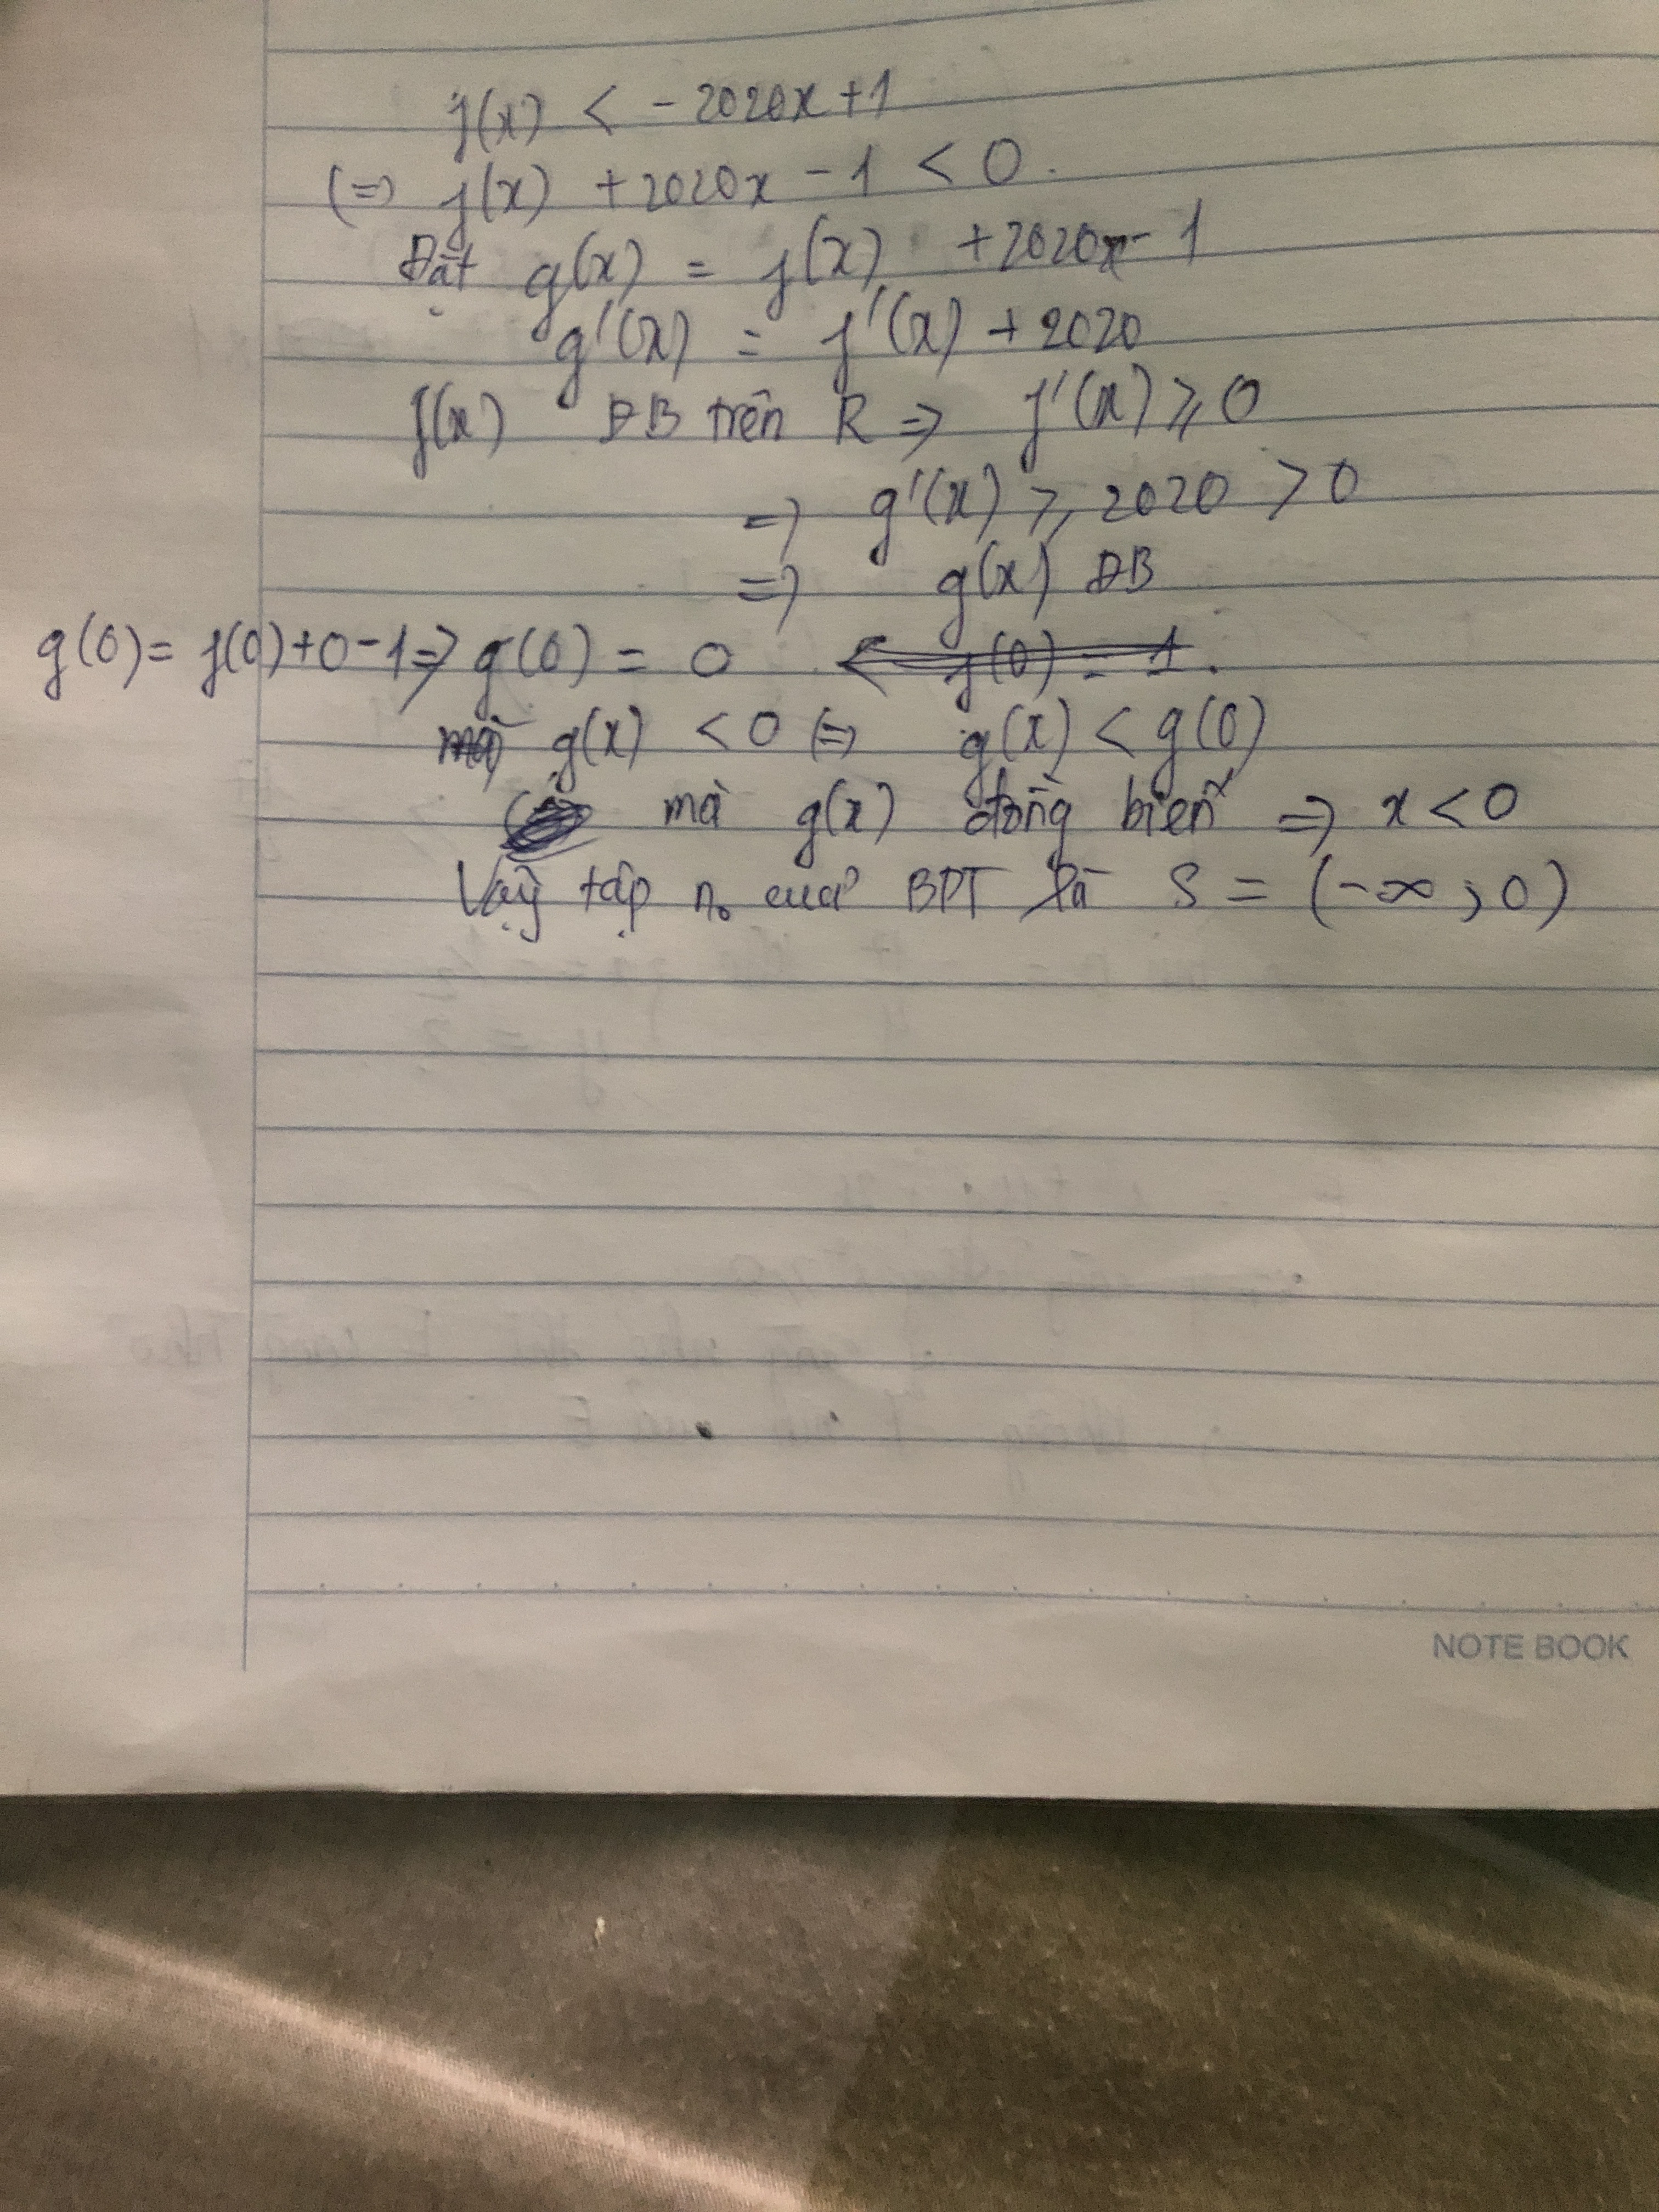 f(x) < -2020x+1
(=) f(x) +2020x - 1 < 0.
Đặt g(x) = f(x) +2020x - 1
g'(x) = f'(x) + 2020
f(x) ĐB trên R => f'(x) ⩾ 0
=> g'(x) ⩾ 2020 > 0
=> g(x) ĐB
g(0) = f(0)+0-1 => g(0) = 0 f(0) = 1.
mà g(x) < 0 (=) g(x) < g(0)
mà g(x) đồng biến => x < 0
Vậy tập n0 của BPT là S = (-∞ ; 0)
NOTE BOOK